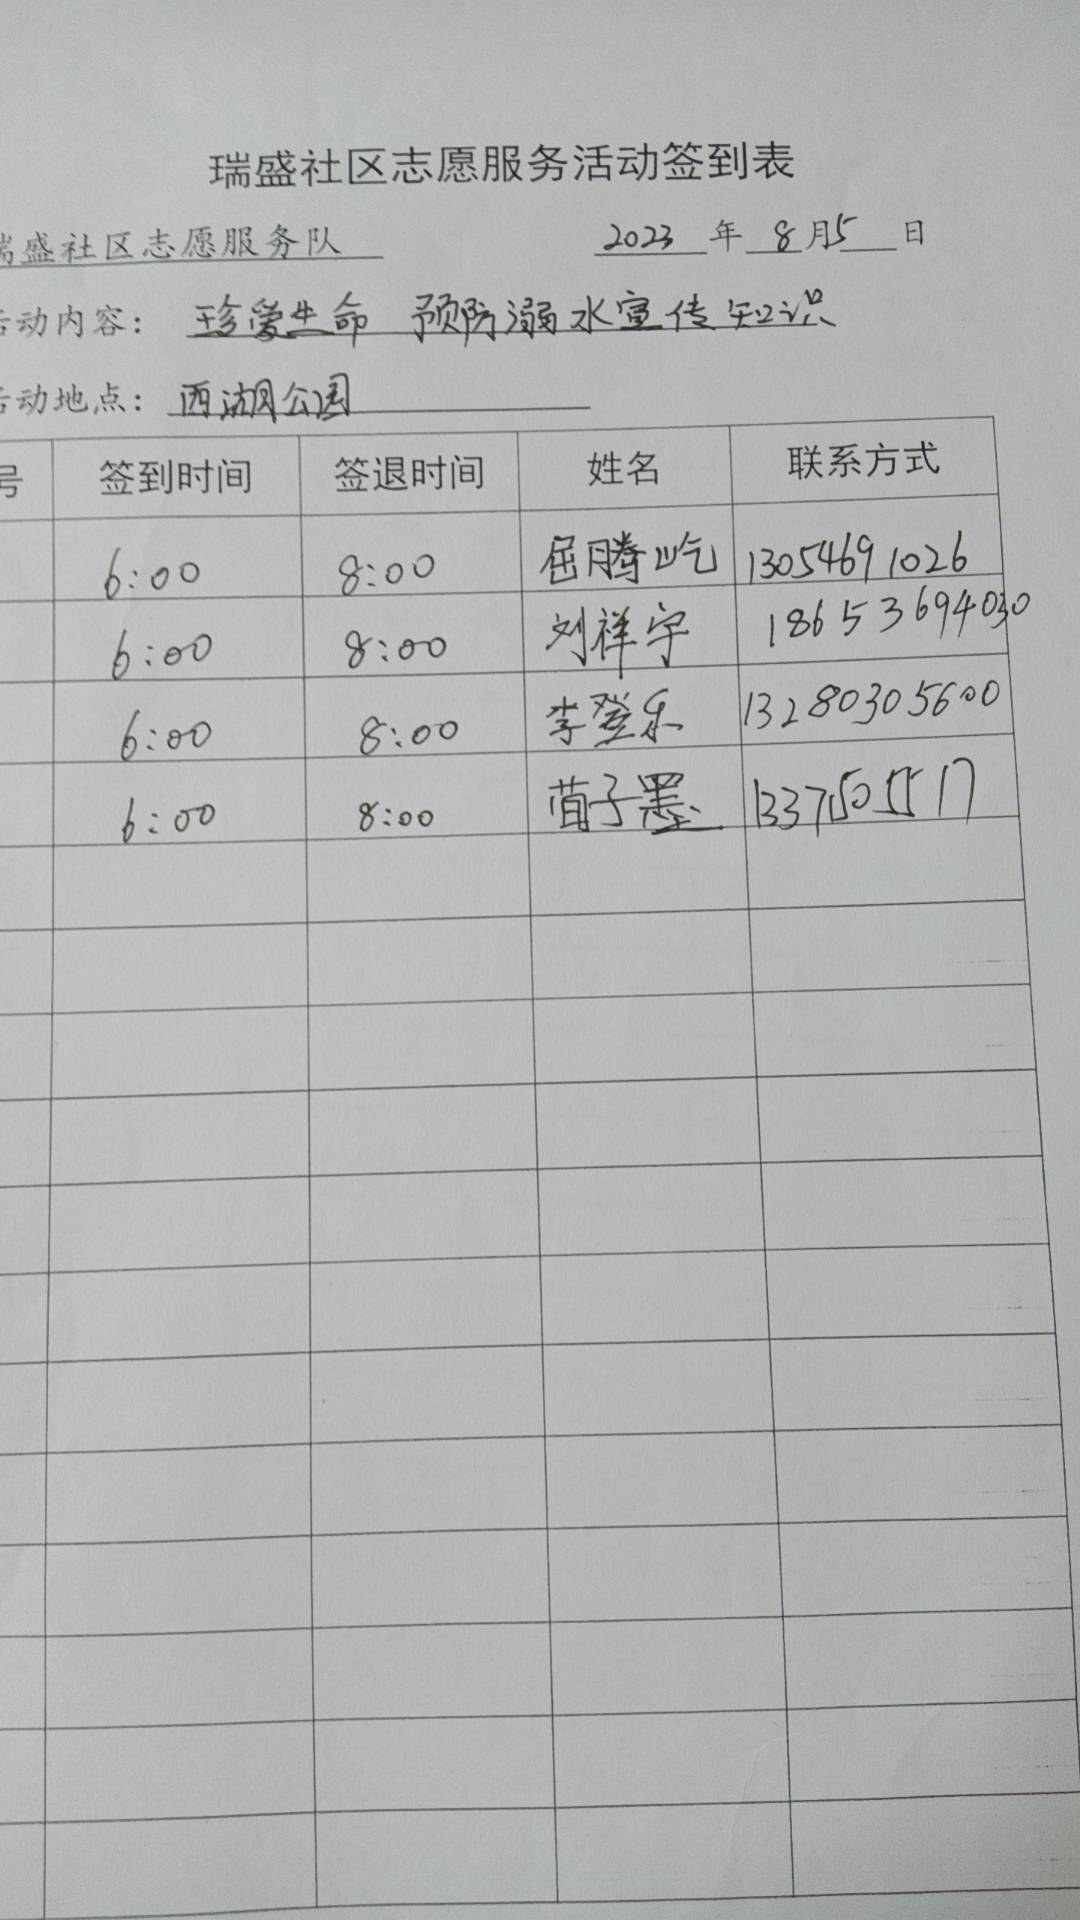 瑞盛社区志愿服务活动签到表
瑞盛社区志愿服务队 2023 年 8 月 5 日
活动内容： 珍爱生命 预防溺水宣传知识
活动地点： 西湖公园
号 签到时间 签退时间 姓名 联系方式
6:00 8:00 屈腾屹 13054691026
6:00 8:00 刘祥宇 18653694030
6:00 8:00 李登乐 13280305600
6:00 8:00 荀子墨